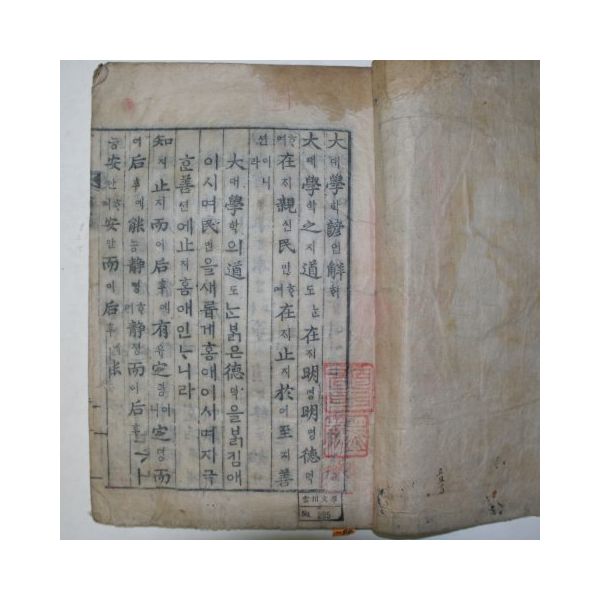 大대學학諺언解ᄒᆡ
大대學학之지道도ᄂᆞᆫ在ᄌᆡ明명明명德덕
ᄒᆞ며在ᄌᆡ親신民민ᄒᆞ며在ᄌᆡ止지於어至지善
션이니라
大대學학의道도ᄂᆞᆫ붉은德덕을붉킴애
이시며民민을새롭게홈애이시며지극
ᄒᆞᆫ善션에止지홈애인ᄂᆞ니라
知지止지而이后후에有유定뎡이니定뎡而
이后후에能능靜졍ᄒᆞ며靜졍而이后후
능安안ᄒᆞ며安안而이后후
No. 285